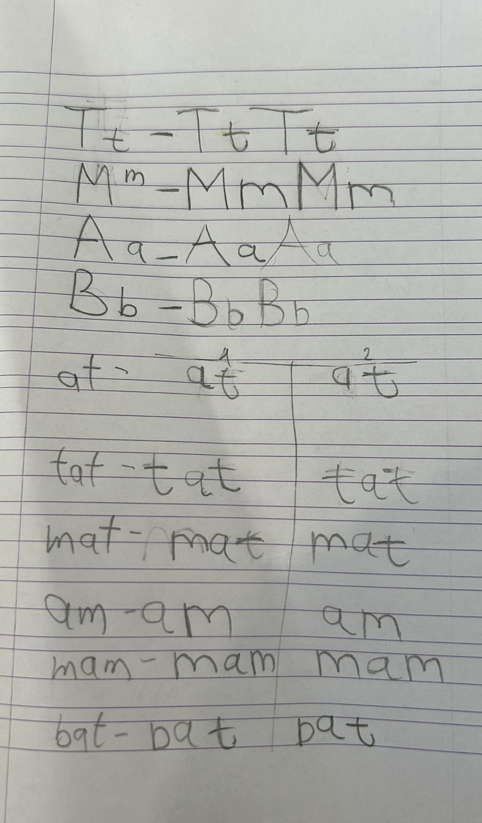 Tt - Tt Tt
Mm - Mm Mm
Aa - Aa Aa
Bb - Bb Bb
1 2
at - at at
tat - tat tat
mat - mat mat
am - am am
mam - mam mam
bat - bat bat